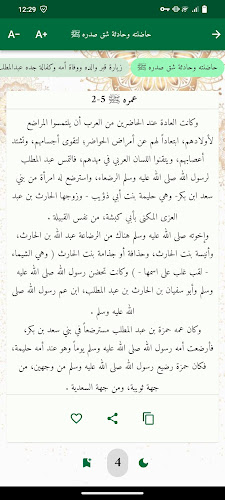 12:29
A- A+ حاضنته وحادثة شق صدره ﷺ
حاضنته وحادثة شق صدره ﷺ زيارة قبر والده ووفاة أمه وكفالة جده عبدالمطلب
عمره ﷺ 5-2
وكانت العادة عند الحاضرين من العرب أن يلتمسوا المراضع
لأولادهم، ابتعاداً لهم عن أمراض الحواضر، لتقوى أجسامهم، وتشتد
أعصابهم، ويتقنوا اللسان العربي في مهدهم، فالتمس عبد المطلب
لرسول الله صلى الله عليه وسلم الرضعاء، واسترضع له امرأة من بني
سعد ابن بكر- وهي حليمة بنت أبي ذؤيب - وزوجها الحارث بن عبد
العزى المكنى بأبي كبشة، من نفس القبيلة .
وإخوته صلى الله عليه وسلم هناك من الرضاعة عبد الله بن الحارث،
وأنيسة بنت الحارث، وحذافة أو جذامة بنت الحارث ( وهي الشيماء
- لقب غلب على اسمها - ) وكانت تحضن رسول الله صلى الله عليه
وسلم وأبو سفيان بن الحارث بن عبد المطلب، ابن عم رسول الله صلى
الله عليه وسلم .
وكان عمه حمزة بن عبد المطلب مسترضعاً في بني سعد بن بكر،
فأرضعت أمه رسول الله صلى الله عليه وسلم يوماً وهو عند أمه حليمة،
فكان حمزة رضيع رسول الله صلى الله عليه وسلم من وجهين، من
جهة ثويبة، ومن جهة السعدية .
4